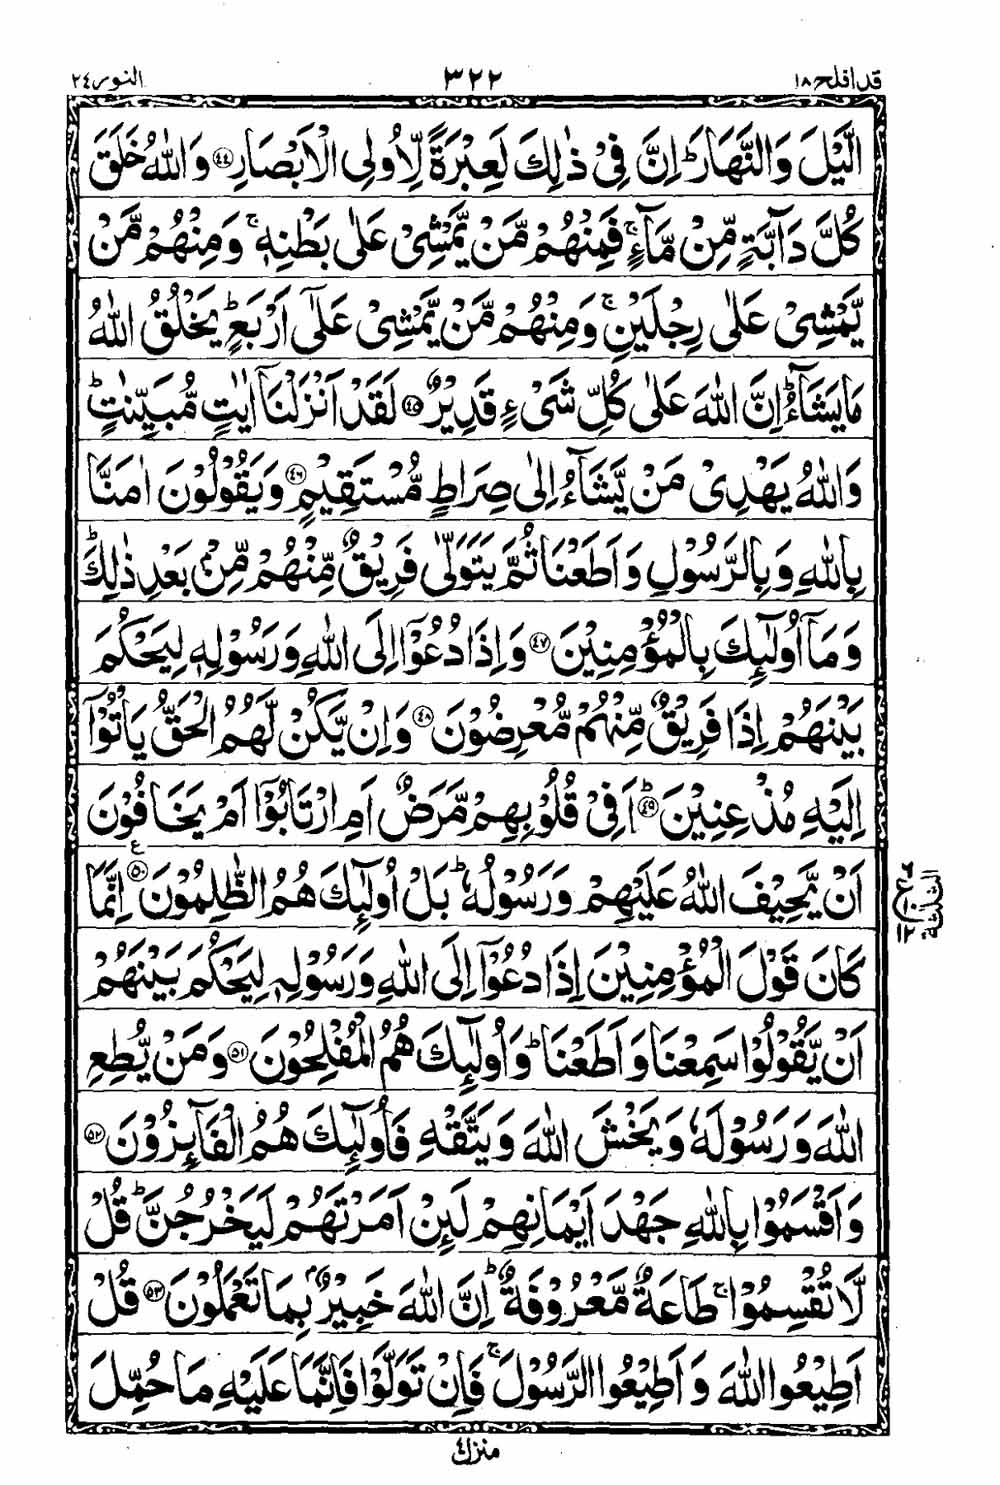 قد افلح ١٨
٣٢٢
النور ٢٤
الَّيۡلَ وَالنَّهَارَ ؕ اِنَّ فِىۡ ذٰلِكَ لَعِبۡرَةً لِّاُولِى الۡاَبۡصَارِ ﴿۴۴﴾ وَاللّٰهُ خَلَقَ
كُلَّ دَآبَّةٍ مِّنۡ مَّآءٍ ۚ فَمِنۡهُمۡ مَّنۡ يَّمۡشِىۡ عَلٰى بَطۡنِهٖ ۚ وَمِنۡهُمۡ مَّنۡ
يَّمۡشِىۡ عَلٰى رِجۡلَيۡنِ ۚ وَمِنۡهُمۡ مَّنۡ يَّمۡشِىۡ عَلٰٓى اَرۡبَعٍ ؕ يَخۡلُقُ اللّٰهُ
مَا يَشَآءُ ؕ اِنَّ اللّٰهَ عَلٰى كُلِّ شَىۡءٍ قَدِيۡرٌ ﴿۴۵﴾ لَقَدۡ اَنۡزَلۡنَاۤ اٰيٰتٍ مُّبَيِّنٰتٍ ؕ
وَاللّٰهُ يَهۡدِىۡ مَنۡ يَّشَآءُ اِلٰى صِرَاطٍ مُّسۡتَقِيۡمٍ ﴿۴۶﴾ وَيَقُوۡلُوۡنَ اٰمَنَّا
بِاللّٰهِ وَبِالرَّسُوۡلِ وَاَطَعۡنَا ثُمَّ يَتَوَلّٰى فَرِيۡقٌ مِّنۡهُمۡ مِّنۡۢ بَعۡدِ ذٰلِكَ ؕ
وَمَاۤ اُولٰٓئِكَ بِالۡمُؤۡمِنِيۡنَ ﴿۴۷﴾ وَاِذَا دُعُوۡۤا اِلَى اللّٰهِ وَرَسُوۡلِهٖ لِيَحۡكُمَ
بَيۡنَهُمۡ اِذَا فَرِيۡقٌ مِّنۡهُمۡ مُّعۡرِضُوۡنَ ﴿۴۸﴾ وَاِنۡ يَّكُنۡ لَّهُمُ الۡحَقُّ يَاۡتُوۡۤا
اِلَيۡهِ مُذۡعِنِيۡنَ ؕ ﴿۴۹﴾ اَفِىۡ قُلُوۡبِهِمۡ مَّرَضٌ اَمِ ارۡتَابُوۡۤا اَمۡ يَخَافُوۡنَ
اَنۡ يَّحِيۡفَ اللّٰهُ عَلَيۡهِمۡ وَرَسُوۡلُهٗ ؕ بَلۡ اُولٰٓئِكَ هُمُ الظّٰلِمُوۡنَ ﴿۵۰﴾ ع اِنَّمَا
كَانَ قَوۡلَ الۡمُؤۡمِنِيۡنَ اِذَا دُعُوۡۤا اِلَى اللّٰهِ وَرَسُوۡلِهٖ لِيَحۡكُمَ بَيۡنَهُمۡ
اَنۡ يَّقُوۡلُوۡا سَمِعۡنَا وَاَطَعۡنَا ؕ وَاُولٰٓئِكَ هُمُ الۡمُفۡلِحُوۡنَ ﴿۵۱﴾ وَمَنۡ يُّطِعِ
اللّٰهَ وَرَسُوۡلَهٗ وَيَخۡشَ اللّٰهَ وَيَتَّقۡهِ فَاُولٰٓئِكَ هُمُ الۡفَآئِزُوۡنَ ﴿۵۲﴾
وَاَقۡسَمُوۡا بِاللّٰهِ جَهۡدَ اَيۡمَانِهِمۡ لَئِنۡ اَمَرۡتَهُمۡ لَيَخۡرُجُنَّ ؕ قُلۡ
لَّا تُقۡسِمُوۡا ۚ طَاعَةٌ مَّعۡرُوۡفَةٌ ؕ اِنَّ اللّٰهَ خَبِيۡرٌۢ بِمَا تَعۡمَلُوۡنَ ﴿۵۳﴾ قُلۡ
اَطِيۡعُوا اللّٰهَ وَاَطِيۡعُوا الرَّسُوۡلَ ۚ فَاِنۡ تَوَلَّوۡا فَاِنَّمَا عَلَيۡهِ مَا حُمِّلَ
الثلثة
منزل ٤